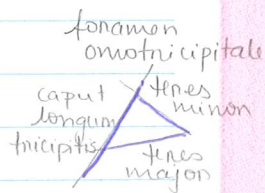 foramen
omotricipitale
caput
longum
tricipitis
teres
minor
teres
major